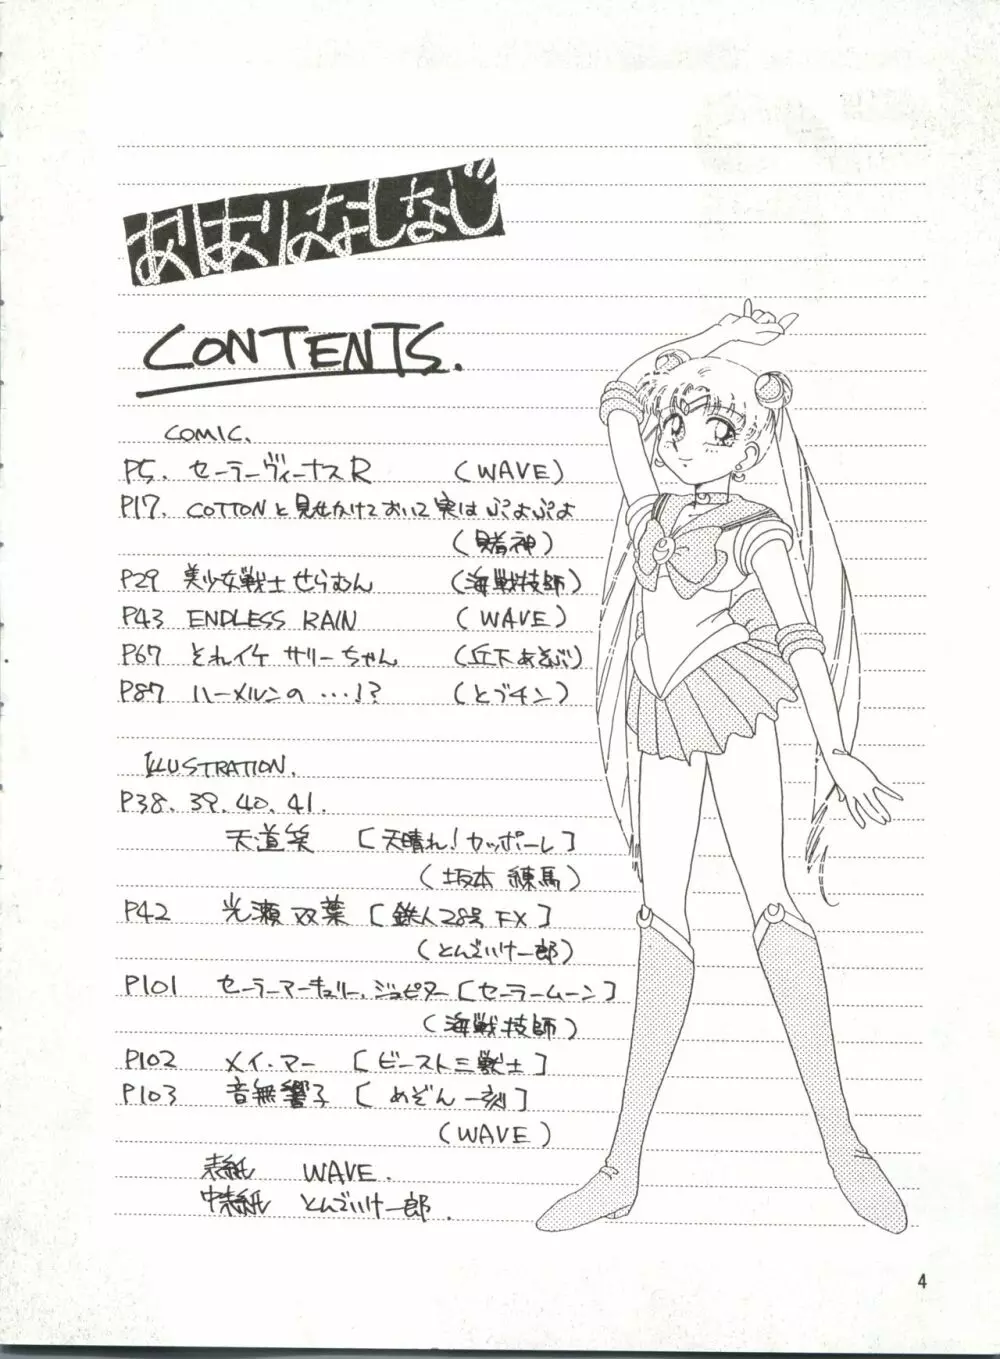 CONTENTS.
COMIC.
P5. セーラーヴィーナスR (WAVE)
P17. COTTONと見せかけておいて実はぷよぷよ
(賭神)
P29 美少女戦士せらむん (海戦技師)
P43 ENDLESS RAIN (WAVE)
P67 それイケ サリーちゃん (丘下あそぶ)
P87 ハーメルンの…!? (とづチン)
ILLUSTRATION.
P38.39.40.41.
天道笑 [天晴れ!カッポーレ]
(坂本 練馬)
P42 光瀬 双葉 [鉄人28号 FX]
(とんでいけ一郎)
P101 セーラーマーキュリー.ジュピター [セーラームーン]
(海戦技師)
P102 メイ・マー [ビースト三獣士]
P103 音無響子 [めぞん一刻]
(WAVE)
表紙 WAVE.
中表紙 とんでいけ一郎.
4